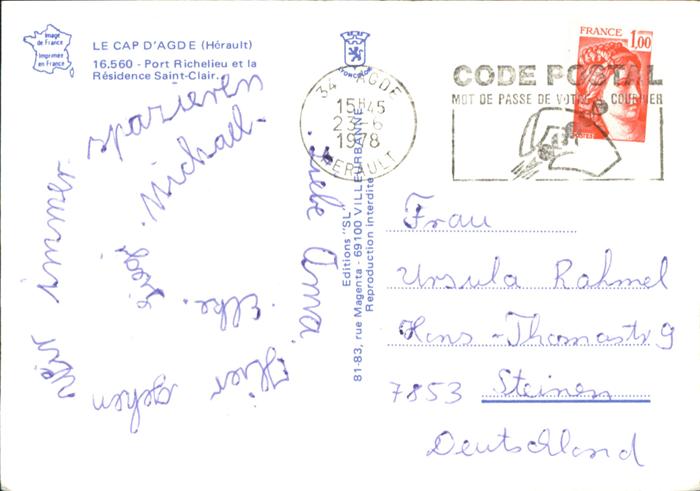 Image
de France
Imprimée
en France
LE CAP D'AGDE (Hérault)
16.560 - Port Richelieu et la
Résidence Saint-Clair.
34 AGDE
15H45
23-6
1978
HERAULT
FRANCE
1,00
POSTES
CODE POSTAL
MOT DE PASSE DE VOTRE COURRIER
Editions "SL"
81-83, rue Magenta - 69100 VILLEURBANNE
Reproduction interdite
Liebe Oma,
Hier gehen
wir immer
spazieren
Michael.
Elke.
Frau
Ursula Rahmel
Hans-Thomastr 9
7853 Steinen
Deutschland